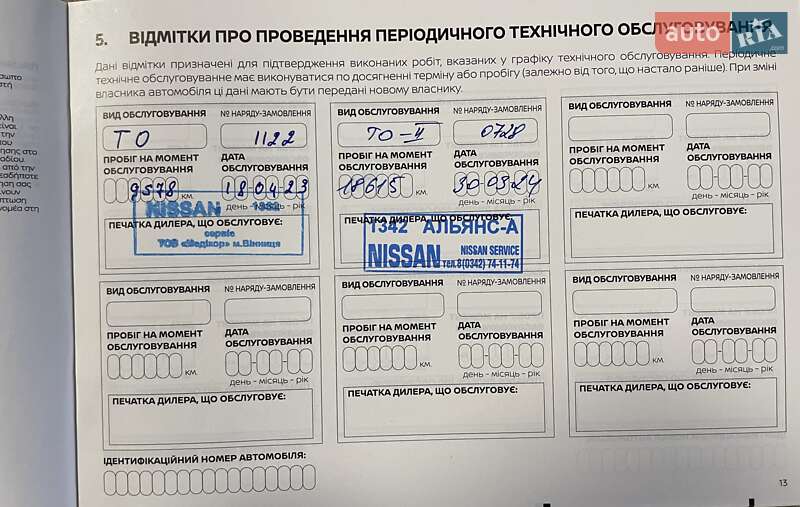 5. ВІДМІТКИ ПРО ПРОВЕДЕННЯ ПЕРІОДИЧНОГО ТЕХНІЧНОГО ОБСЛУГОВУВАННЯ
autoRIA.com
Дані відмітки призначені для підтвердження виконаних робіт, вказаних у графіку технічного обслуговування. Періодичне
технічне обслуговуванне має виконуватися по досягненні терміну або пробігу (залежно від того, що настало раніше). При зміні
власника автомобіля ці дані мають бути передані новому власнику.
ВИД ОБСЛУГОВУВАННЯ № НАРЯДУ-ЗАМОВЛЕННЯ
ТО 1122
ПРОБІГ НА МОМЕНТ ОБСЛУГОВУВАННЯ ДАТА ОБСЛУГОВУВАННЯ
9578 КМ. 18.04.23
день - місяць - рік
ПЕЧАТКА ДИЛЕРА, ЩО ОБСЛУГОВУЄ:
NISSAN
сервіс
ТОВ «Медікор» м.Вінниця
ВИД ОБСЛУГОВУВАННЯ № НАРЯДУ-ЗАМОВЛЕННЯ
ТО-II 0728
ПРОБІГ НА МОМЕНТ ОБСЛУГОВУВАННЯ ДАТА ОБСЛУГОВУВАННЯ
18615 КМ. 30.03.24
день - місяць - рік
ПЕЧАТКА ДИЛЕРА, ЩО ОБСЛУГОВУЄ:
1342 АЛЬЯНС-А
NISSAN NISSAN SERVICE
тел.8(0342) 74-11-74
ВИД ОБСЛУГОВУВАННЯ № НАРЯДУ-ЗАМОВЛЕННЯ
ПРОБІГ НА МОМЕНТ ОБСЛУГОВУВАННЯ ДАТА ОБСЛУГОВУВАННЯ
КМ. день - місяць - рік
ПЕЧАТКА ДИЛЕРА, ЩО ОБСЛУГОВУЄ:
ВИД ОБСЛУГОВУВАННЯ № НАРЯДУ-ЗАМОВЛЕННЯ
ПРОБІГ НА МОМЕНТ ОБСЛУГОВУВАННЯ ДАТА ОБСЛУГОВУВАННЯ
КМ. день - місяць - рік
ПЕЧАТКА ДИЛЕРА, ЩО ОБСЛУГОВУЄ:
ВИД ОБСЛУГОВУВАННЯ № НАРЯДУ-ЗАМОВЛЕННЯ
ПРОБІГ НА МОМЕНТ ОБСЛУГОВУВАННЯ ДАТА ОБСЛУГОВУВАННЯ
КМ. день - місяць - рік
ПЕЧАТКА ДИЛЕРА, ЩО ОБСЛУГОВУЄ:
ВИД ОБСЛУГОВУВАННЯ № НАРЯДУ-ЗАМОВЛЕННЯ
ПРОБІГ НА МОМЕНТ ОБСЛУГОВУВАННЯ ДАТА ОБСЛУГОВУВАННЯ
КМ. день - місяць - рік
ПЕЧАТКА ДИЛЕРА, ЩО ОБСЛУГОВУЄ:
ІДЕНТИФІКАЦІЙНИЙ НОМЕР АВТОМОБІЛЯ:
13